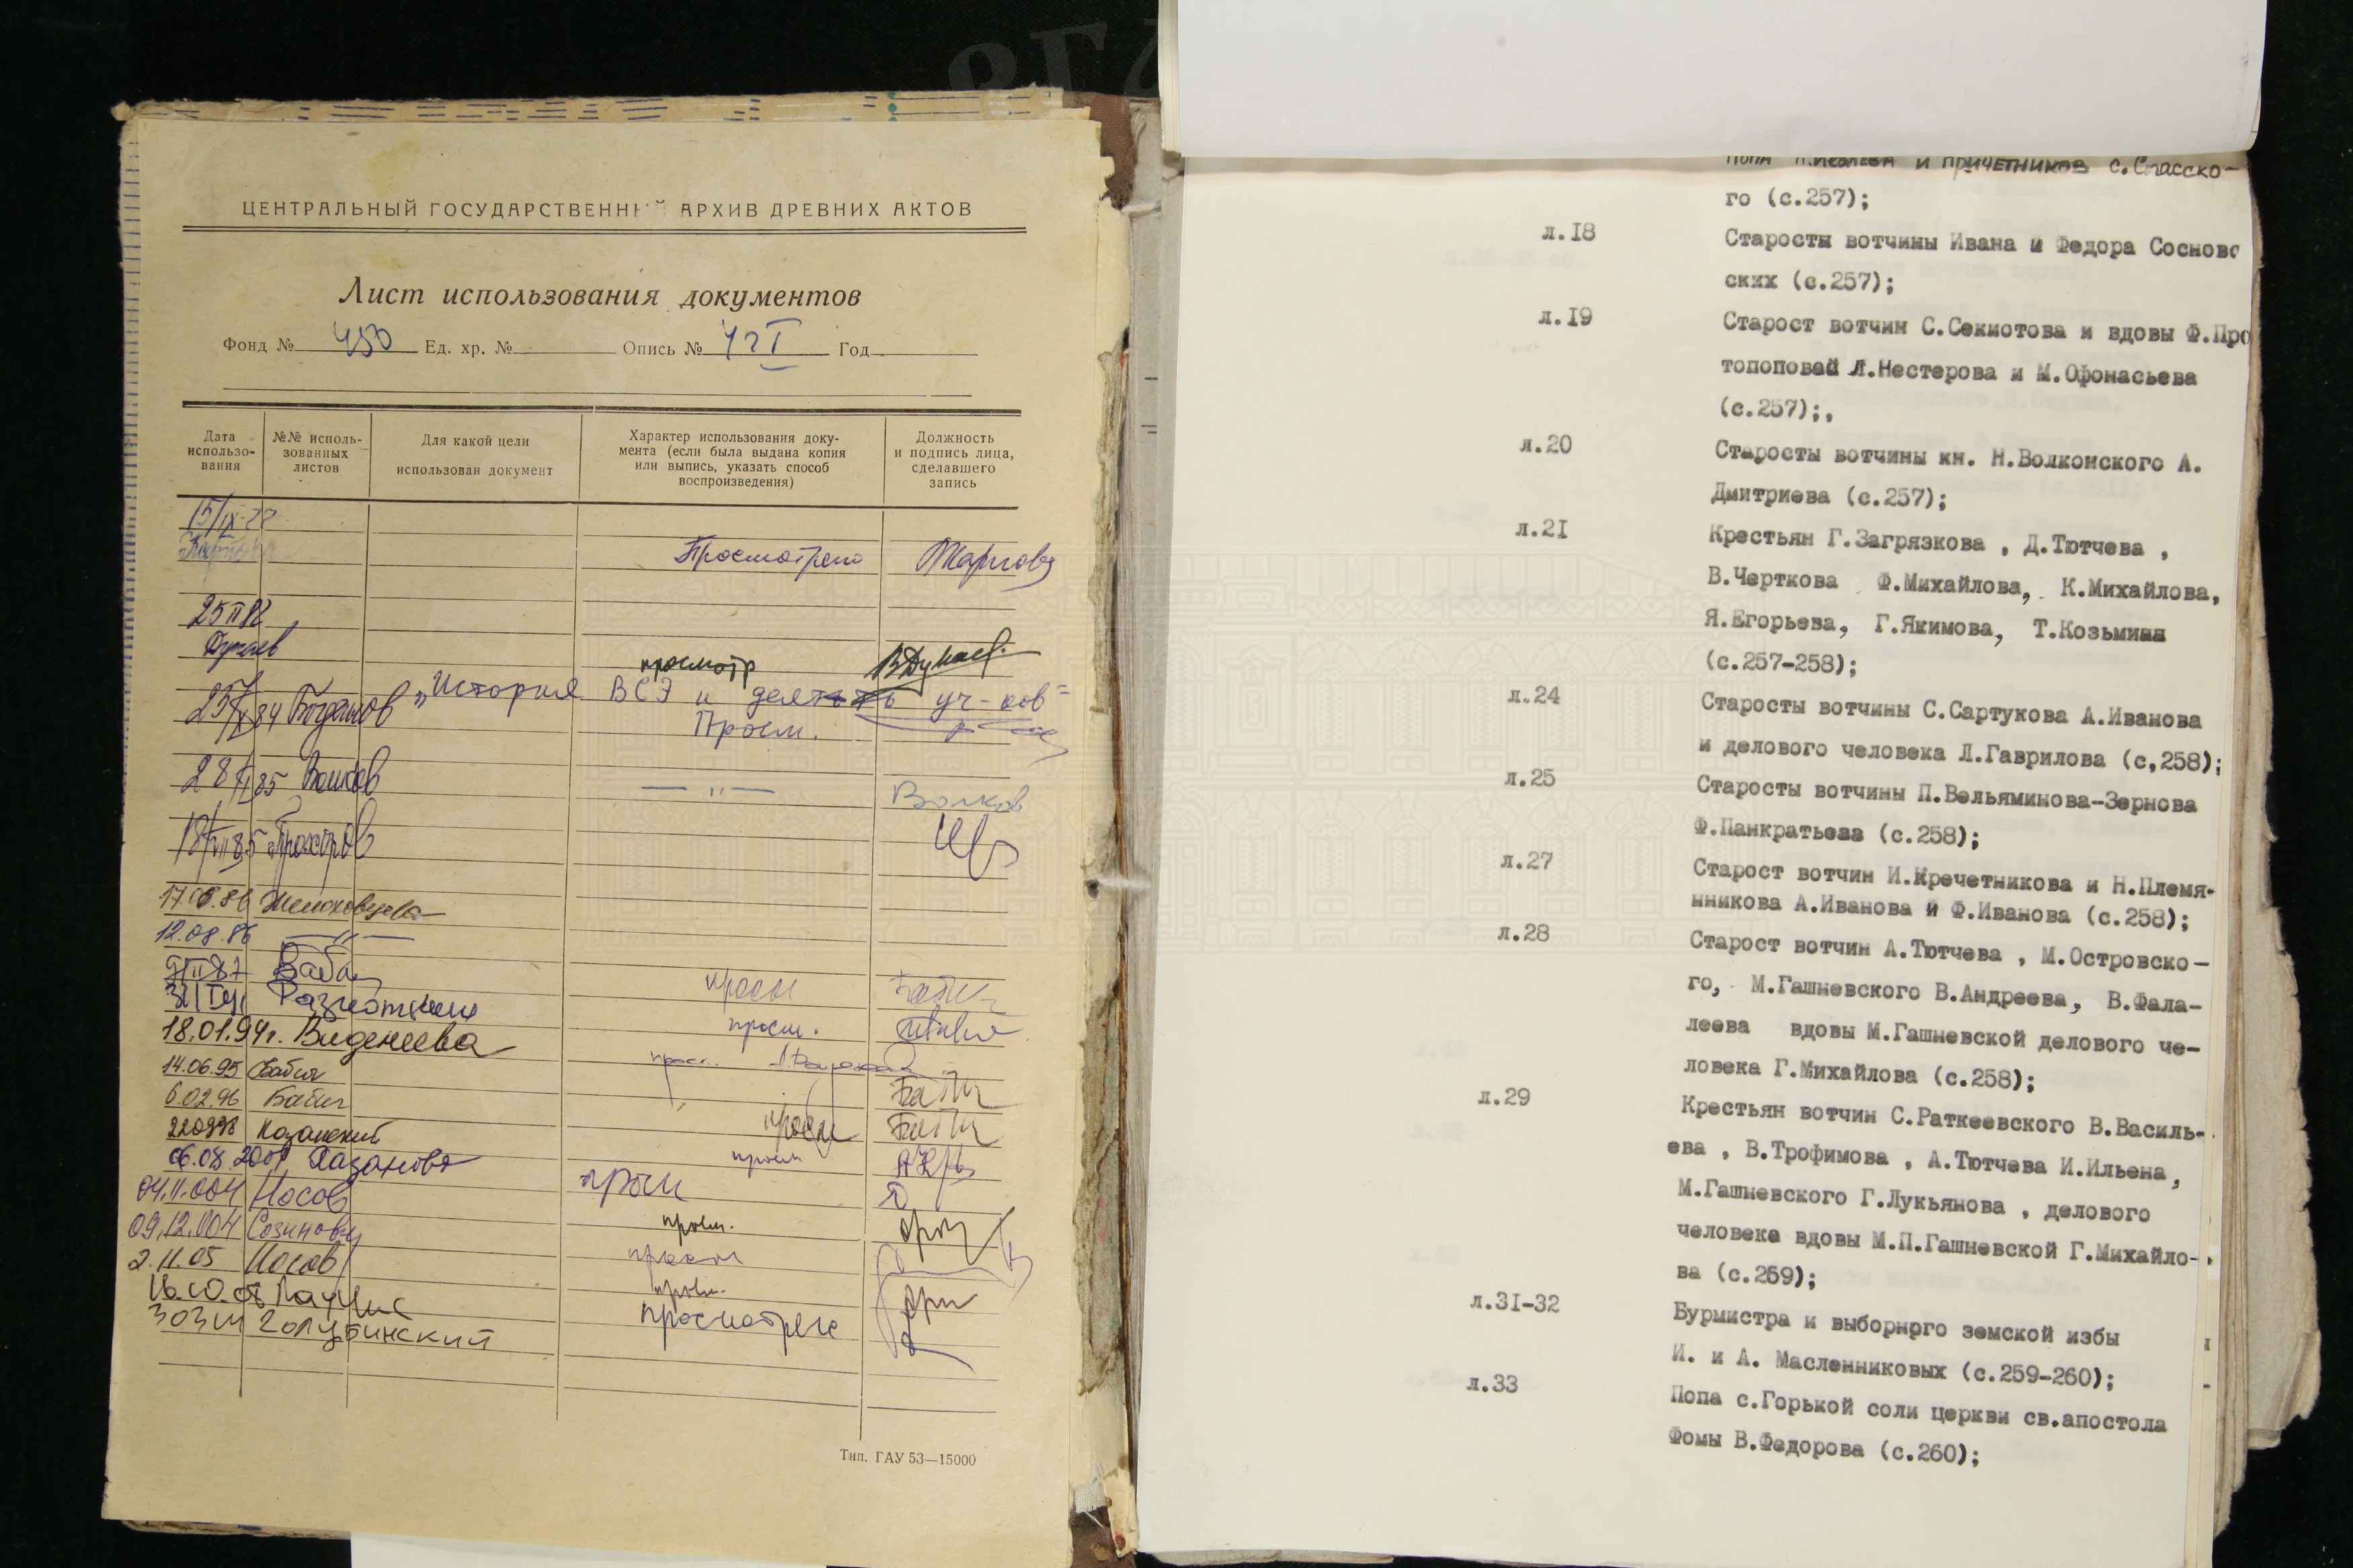 ЦЕНТРАЛЬНЫЙ ГОСУДАРСТВЕННЫЙ АРХИВ ДРЕВНИХ АКТОВ
Лист использования документов
Фонд № 450 Ед. хр. № Опись № Год
Дата использо-вания
№№ исполь-зованных листов
Для какой цели использован документ
Характер использования доку-мента (если была выдана копия или выпись, указать способ воспроизведения)
Должность и подпись лица, сделавшего запись
15/IX-77
Просмотрено
25 II 82
просмотр
25/X 84 Богданов „История ВСЭ и уч-ков"
Просм.
28/ 85 Волков — " — Волков
18/VII 85 Прохоров
17.06.86
12.08.86 — " —
просм
18.01.94г. Виденеева просм.
14.06.95 Бабич
6.02.96 Бабич
220998 Казанский просм
06.08.2001 Казакова просм
04.11.004 Носов просм
09.12.004 просм.
2.11.05 Носов просм
просм.
Голубинский просмотрел
Тип. ГАУ 53—15000
и причетников с.Спасско-
го (с.257);
л.18 Старосты вотчины Ивана и Федора Сосновс
ских (с.257);
л.19 Старост вотчин С.Секиотова и вдовы Ф.Про
топоповой Л.Нестерова и М.Офонасьева
(с.257);,
л.20 Старосты вотчины кн. Н.Волконского А.
Дмитриева (с.257);
л.21 Крестьян Г.Загрязкова , Д.Тютчева ,
В.Черткова Ф.Михайлова, К.Михайлова,
Я.Егорьева, Г.Якимова, Т.Козьмина
(с.257-258);
л.24 Старосты вотчины С.Сартукова А.Иванова
и делового человека Л.Гаврилова (с,258);
л.25 Старосты вотчины П.Вельяминова-Зернова
Ф.Панкратьева (с.258);
л.27 Старост вотчин И.Кречетникова и Н.Племя-
нникова А.Иванова и Ф.Иванова (с.258);
л.28 Старост вотчин А.Тютчева , М.Островско-
го, М.Гашневского В.Андреева, В.Фала-
леева вдовы М.Гашневской делового че-
ловека Г.Михайлова (с.258);
л.29 Крестьян вотчин С.Раткеевского В.Василь-
ева , В.Трофимова , А.Тютчева И.Ильена,
М.Гашневского Г.Лукьянова , делового
человека вдовы М.П.Гашневской Г.Михайло-
ва (с.259);
л.31-32 Бурмистра и выборного земской избы
И. и А. Масленниковых (с.259-260);
л.33 Попа с.Горькой соли церкви св.апостола
Фомы В.Федорова (с.260);